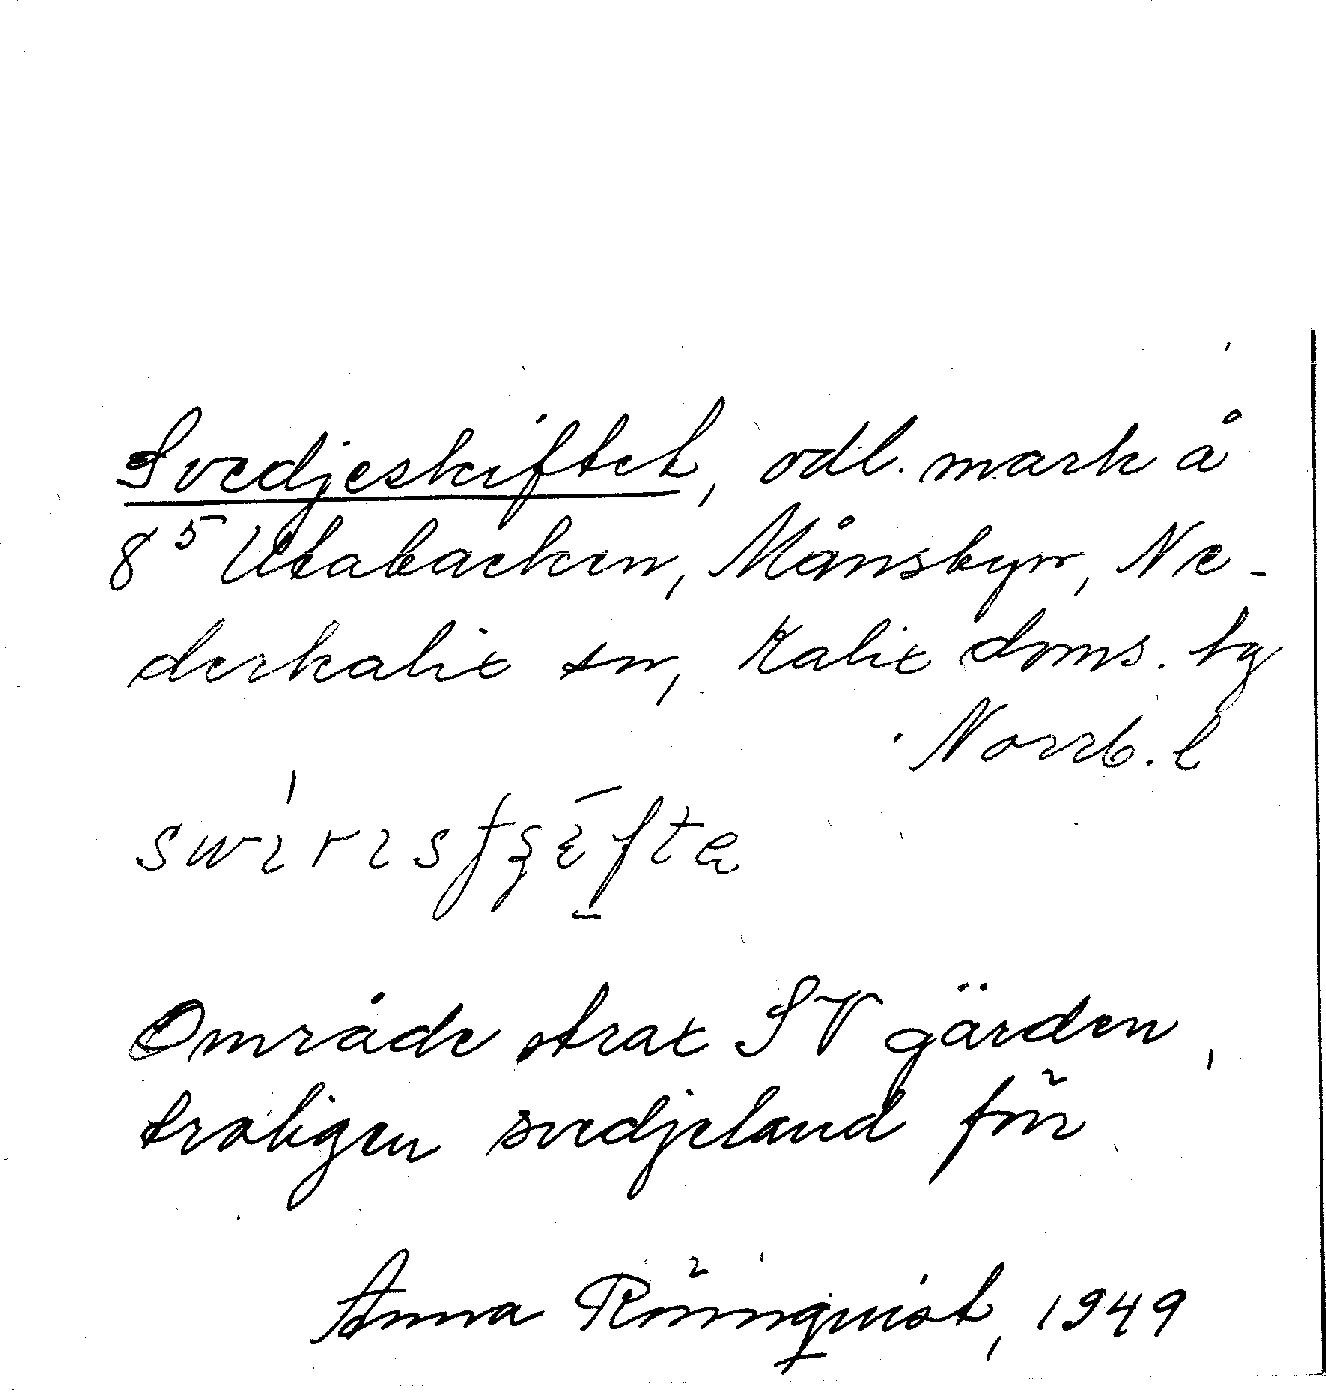 Svedjeskiftet, odl. mark å
8⁵ Utabacken, Månsbyn, Ne-
derkalix sn, Kalix doms. tg
Norrb. l
Område strax SV gärden,
troligen svedjeland förr
Anna Rönnquist, 1949